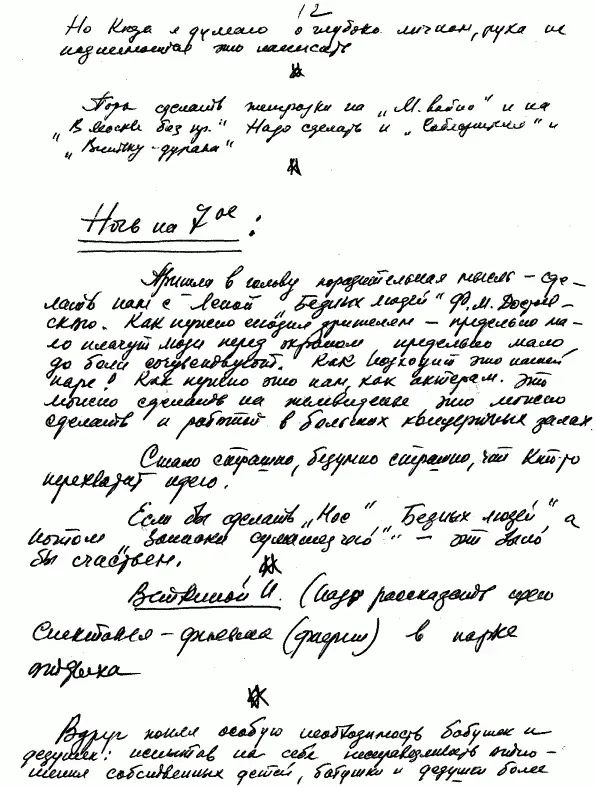 12
Но когда я думаю о глубоко личном, рука не
поднимается это написать
Пора сделать на „М. и на
„В Москве Надо сделать и и
дурака“
Ночь на 7ое :
Пришла в голову поразительная мысль – сде-
лать нам с Леной „Бедных людей“ Ф.М. Достоев-
ского. Как нужно сегодня зрителям – предельно ма-
ло плачут люди перед экраном, предельно мало
до боли сочувствуют. Как подходит это нашей
паре! Как нужно это нам, как актерам. Это
можно сделать на телевидении это можно
сделать и работой в больших концертных залах.
Стало страшно, безумно страшно, что кто-то
перехватит идею.
Если бы сделать „Нос“ „Бедных людей“, а
потом „Записки сумасшедшего“ – это было
бы счастьем.
И. (надо рассказать идею
спектакля – фильма в парке
отдыха
Вдруг понял особую необходимость бабушек и
дедушек: испытав на себе несправедливость отно-
шения собственных детей, бабушки и дедушки более